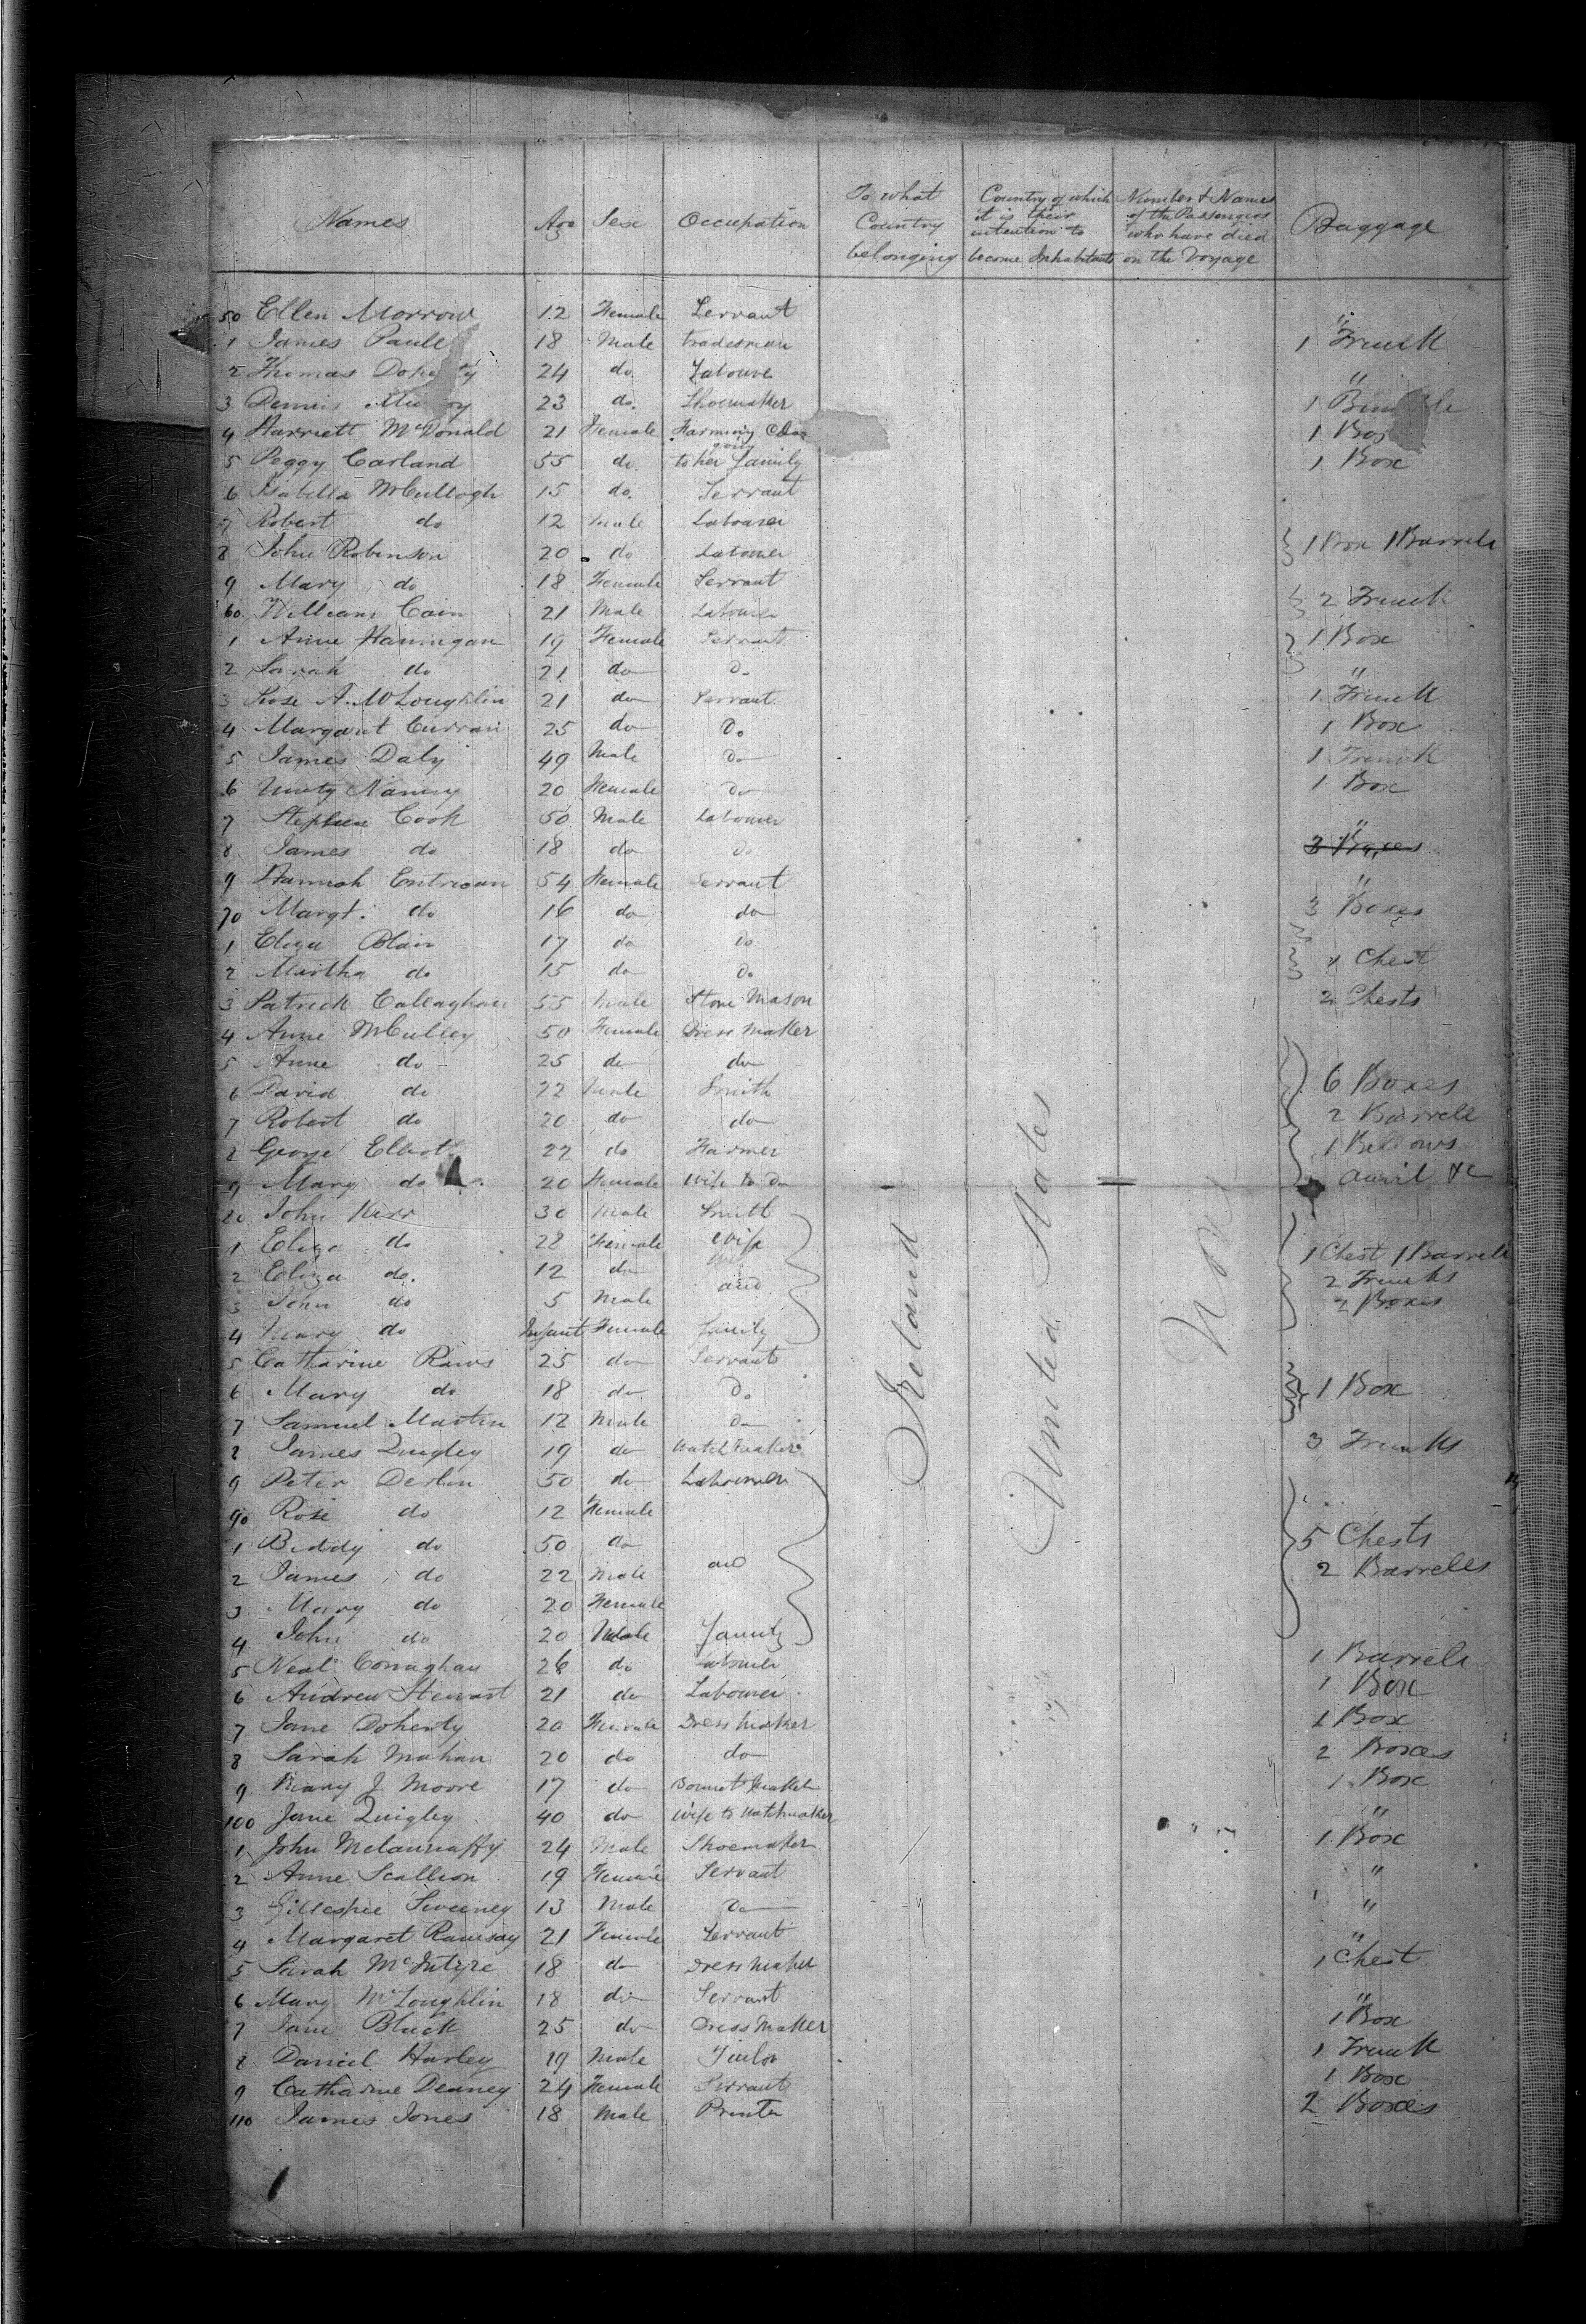 Names Age Sex Occupation To what Country belonging Country of which it is their intention to become Inhabitants Number & Names of the Passengers who have died on the Voyage Baggage
50 Ellen Morrow 12 Female Servant "
1 James Paull 18 Male tradesman 1 Trunk
2 Thomas Doherty 24 do Labourer "
3 Dennis 23 do. Shoemaker 1
4 Harriett McDonald 21 Female Farming 1 Box
5 Peggy Carland 55 do. going to her family 1 Box
6 Isabella McCullogh 15 do. Servant
7 Robert do 12 male Labourer
8 John Robinson 20 do Labourer 1 Box 1 Barrele
9 Mary do 18 Female Servant
60 William Cain 21 Male Labourer 2 Trunk
1 Anne Hannigan 19 Female Servant 1 Box
2 Sarah do 21 do Do "
3 Rose A. McLoughlin 21 do Servant 1 Trunk
4 Margaret Curran 25 do Do 1 Box
5 James Daly 49 Male Do 1 Trunk
6 Nancy 20 Female Do 1 Box
7 Stephen Cook 50 Male Labourer "
8 James do 18 do Do 3 Boxes
9 Hannah Entrican 54 Female Servant "
70 Margt. do 16 do do 3 Boxes
1 Eliza Blair 17 do Do
2 Martha do 15 do Do 1 Chest
3 Patrick Callaghan 55 Male Stone Mason 2 Chests
4 Anne McCulley 50 Female Dress Maker
5 Anne do 25 do do
6 David do 22 male Smith 6 Boxes
7 Robert do 20 do do 2 Barrele
8 George Elliott 22 do Farmer 1 Bellows
9 Mary do 20 Female Wife to Do Anvil &c
80 John Kerr 30 Male Smith
1 Eliza do 28 Female Wife 1 Chest 1 Barrele
2 Eliza do. 12 do and 2 Trunks
3 John do 5 Male 2 Boxes
4 Mary do Infant Female family
5 Catharine Raws 25 do Servant
6 Mary do 18 do Do 1 Box
7 Samuel Martin 12 Male Do
8 James Quigley 19 do Watchmaker 3 Trunks
9 Peter Derlin 50 do Labourer
90 Rose do 12 Female
1 Biddy do 50 do and 5 Chests
2 James do 22 Male 2 Barreles
3 Mary do 20 Female
4 John do 20 Male family
5 Neal Conaghan 26 do Labourer 1 Barrele
6 Andrew Stewart 21 do Labourer 1 Box
7 Jane Doherty 20 Female Dress Maker 1 Box
8 Sarah Mahan 20 do do 2 Boxes
9 Mary J Moore 17 do Bonnet Maker 1 Box
100 Jane Quigley 40 do Wife to Watchmaker "
1 John 24 Male Shoemaker 1 Box
2 Anne Scallion 19 Female Servant "
3 Gillespie Sweeney 13 Male Do "
4 Margaret Ramsay 21 Female Servant "
5 Sarah McIntyre 18 do Dress Maker 1 Chest
6 Mary McLoughlin 18 do Servant "
7 Jane Black 25 do Dress Maker 1 Box
8 Daniel Harley 19 Male Tailor 1 Trunk
9 Catharine Deaney 24 Female Servant 1 Box
110 James Jones 18 Male Printer 2 Boxes
Ireland
United States
None